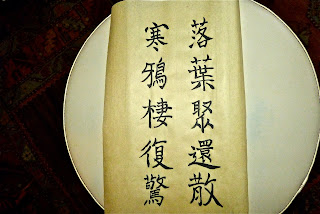 落葉聚還散
寒鴉棲復驚